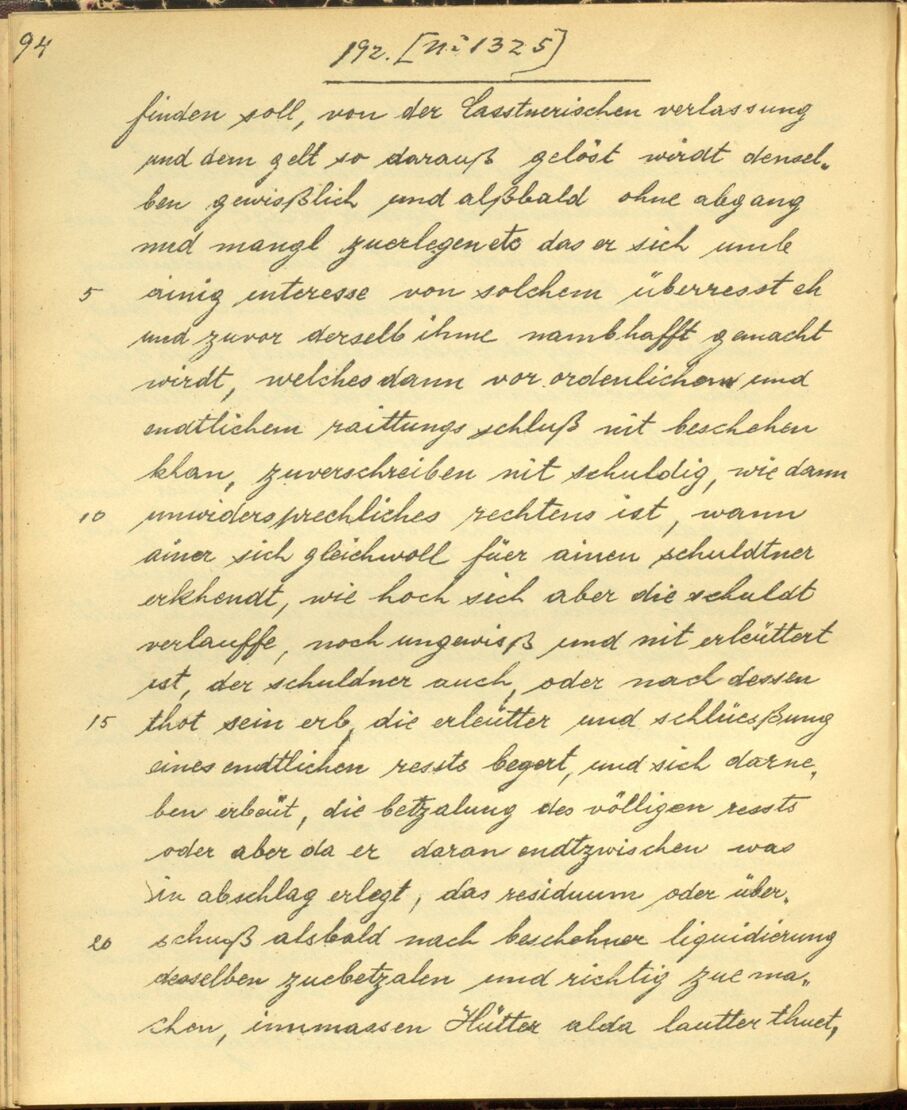 94
192. [Nº 1325]
finden soll, von der Casstnerischen verlassung
und dem gelt so darauß gelöst wirdt densel„
ben gewißlich und alßbald ohne abgang
und mangl zuerlegen etc das er sich umb
5 ainig interesse von solchem überresst eh
und zuvor derselb ihme nambhafft gemacht
wirdt, welches dann vor ordenlichem und
endtlichem raittungs schluß nit beschehen
khan, zuverschreiben nit schuldig, wie dann
10 unwidersprechliches rechtens ist, wann
ainer sich gleichwoll füer ainen schuldtner
erkhendt, wie hoch sich aber die schuldt
verlauffe, noch ungewiß und nit erleüttert
ist, der schuldner auch, oder nach dessen
15 thot sein erb, die erleütter und schlüesßung
eines endtlichen ressts begert, und sich darne„
ben erbeüt, die betzalung des völligen ressts
oder aber da er daran endtzwischen was
in abschlag erlegt, das residuum oder über„
20 schuß alsbald nach beschehner liquidierung
desselben zuebetzalen und richtig zue ma„
chen, inmassen Hütter alda lautter thuet,